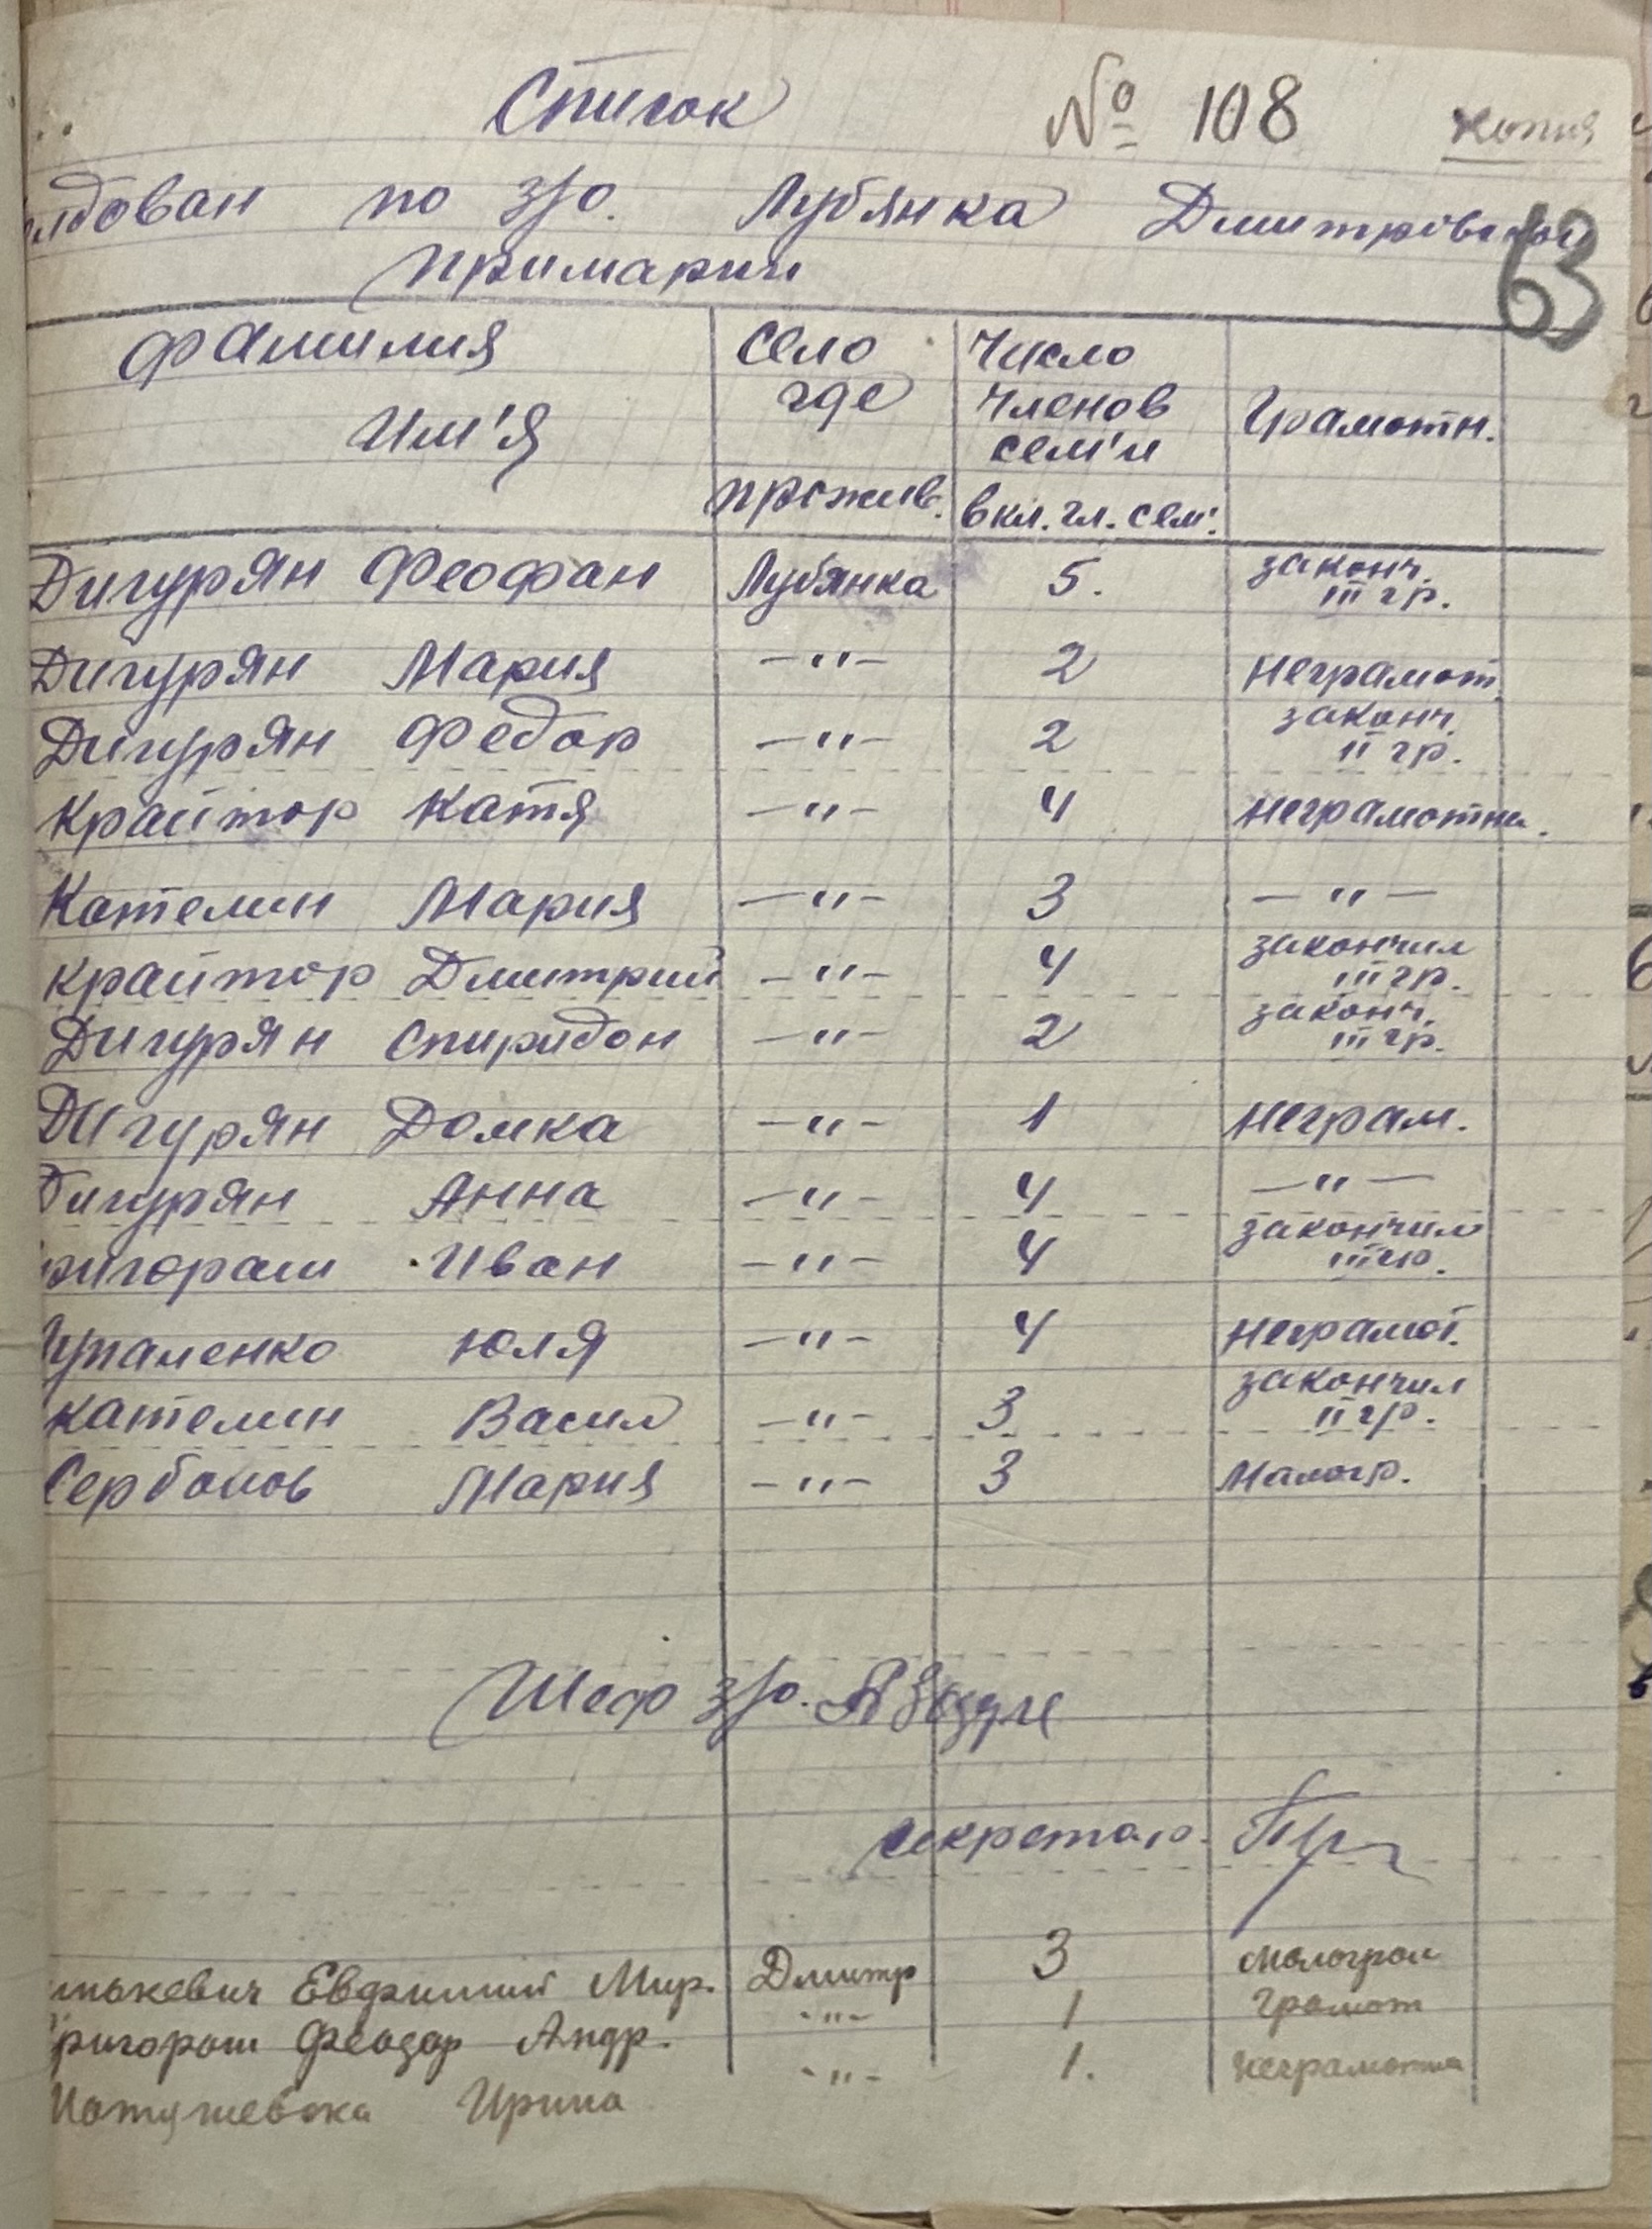 Список № 108 копия
лдован по з/о. Лубянка Дмитровской
примарии
63
фамилия Им'я Село где прожив. Число членов сем'и вкл. гл. сем. Грамотн.
Дигурян Феофан Лубянка 5. законч. III гр.
Дигурян Мария —"— 2 Неграмот.
Дигурян Федор —"— 2 законч. II гр.
Крайтор Катя —"— 4 неграмотна.
Кателин Мария —"— 3 —"—
Крайтор Дмитрий —"— 4 закончил III гр.
Дигурян Спиридон —"— 2 законч. III гр.
Дигурян Домка —"— 1 неграм.
Дигурян Анна —"— 4 —"—
ригораш Иван —"— 4 закончил III гр.
Гупаленко Юля —"— 4 неграмот.
Кателин Васил —"— 3 закончил II гр.
Сербонов Мария —"— 3 Малогр.
Шеф з/о.
секретар.
нькевич Евфимий Мир. Дмитр 3 Малограм
ригораш Феодор Андр. —"— 1 Грамот
Ирина —"— 1. неграмотна